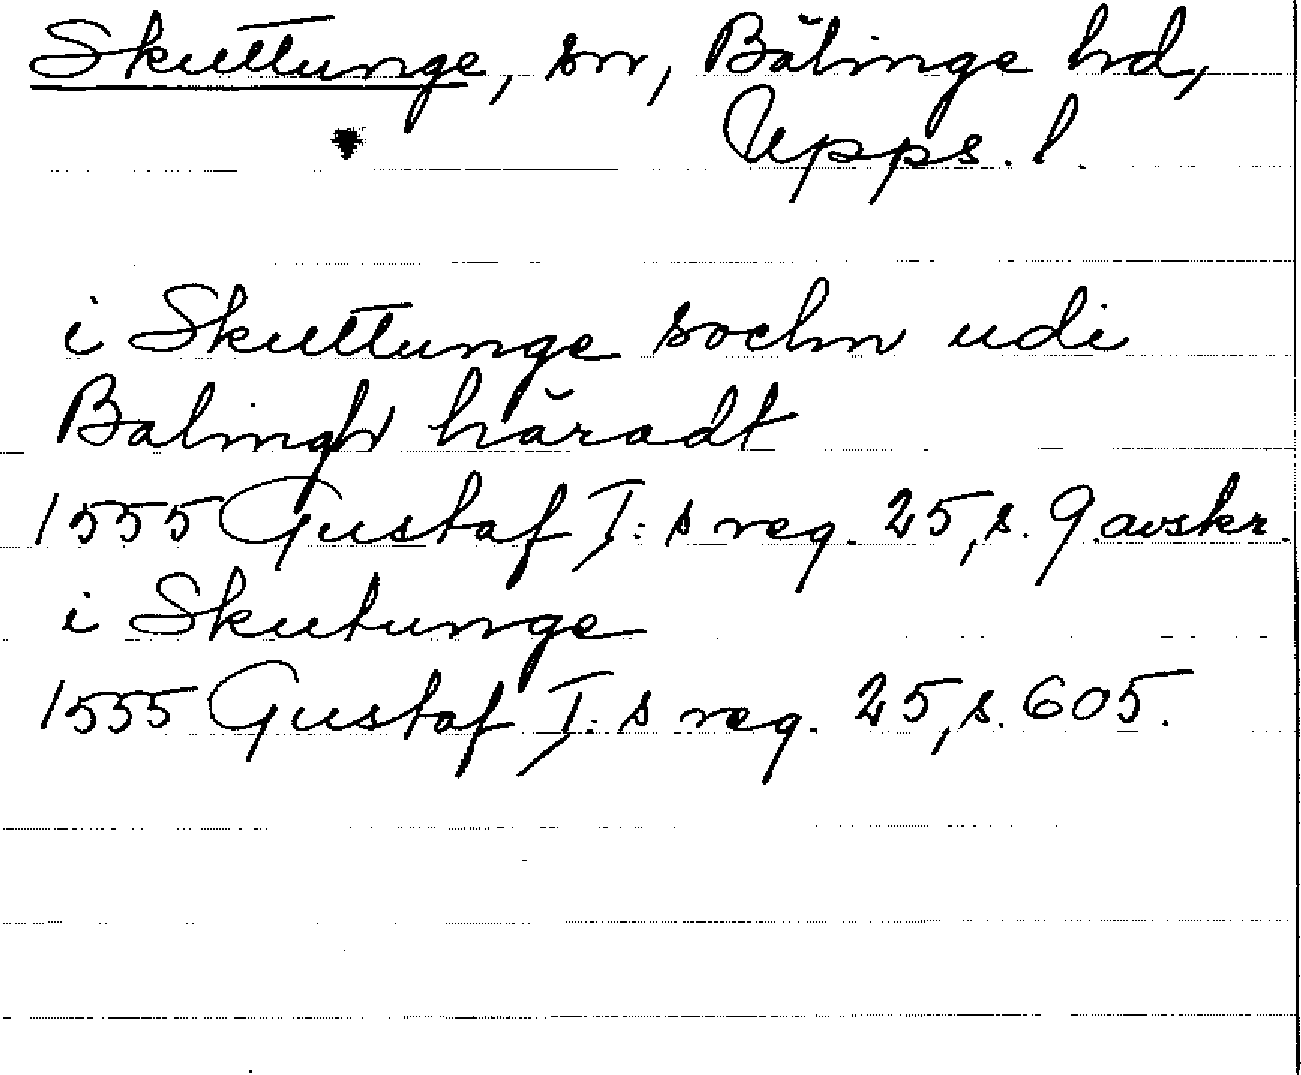 Skuttunge, sn, Bälinge hd,
Upps. l.
i Skuttunge sochn udi
Balingh häradt
1555 Gustaf I: s reg. 25, s. 9 avskr.
i Skutunge
1555 Gustaf I: s reg. 25, s. 605.